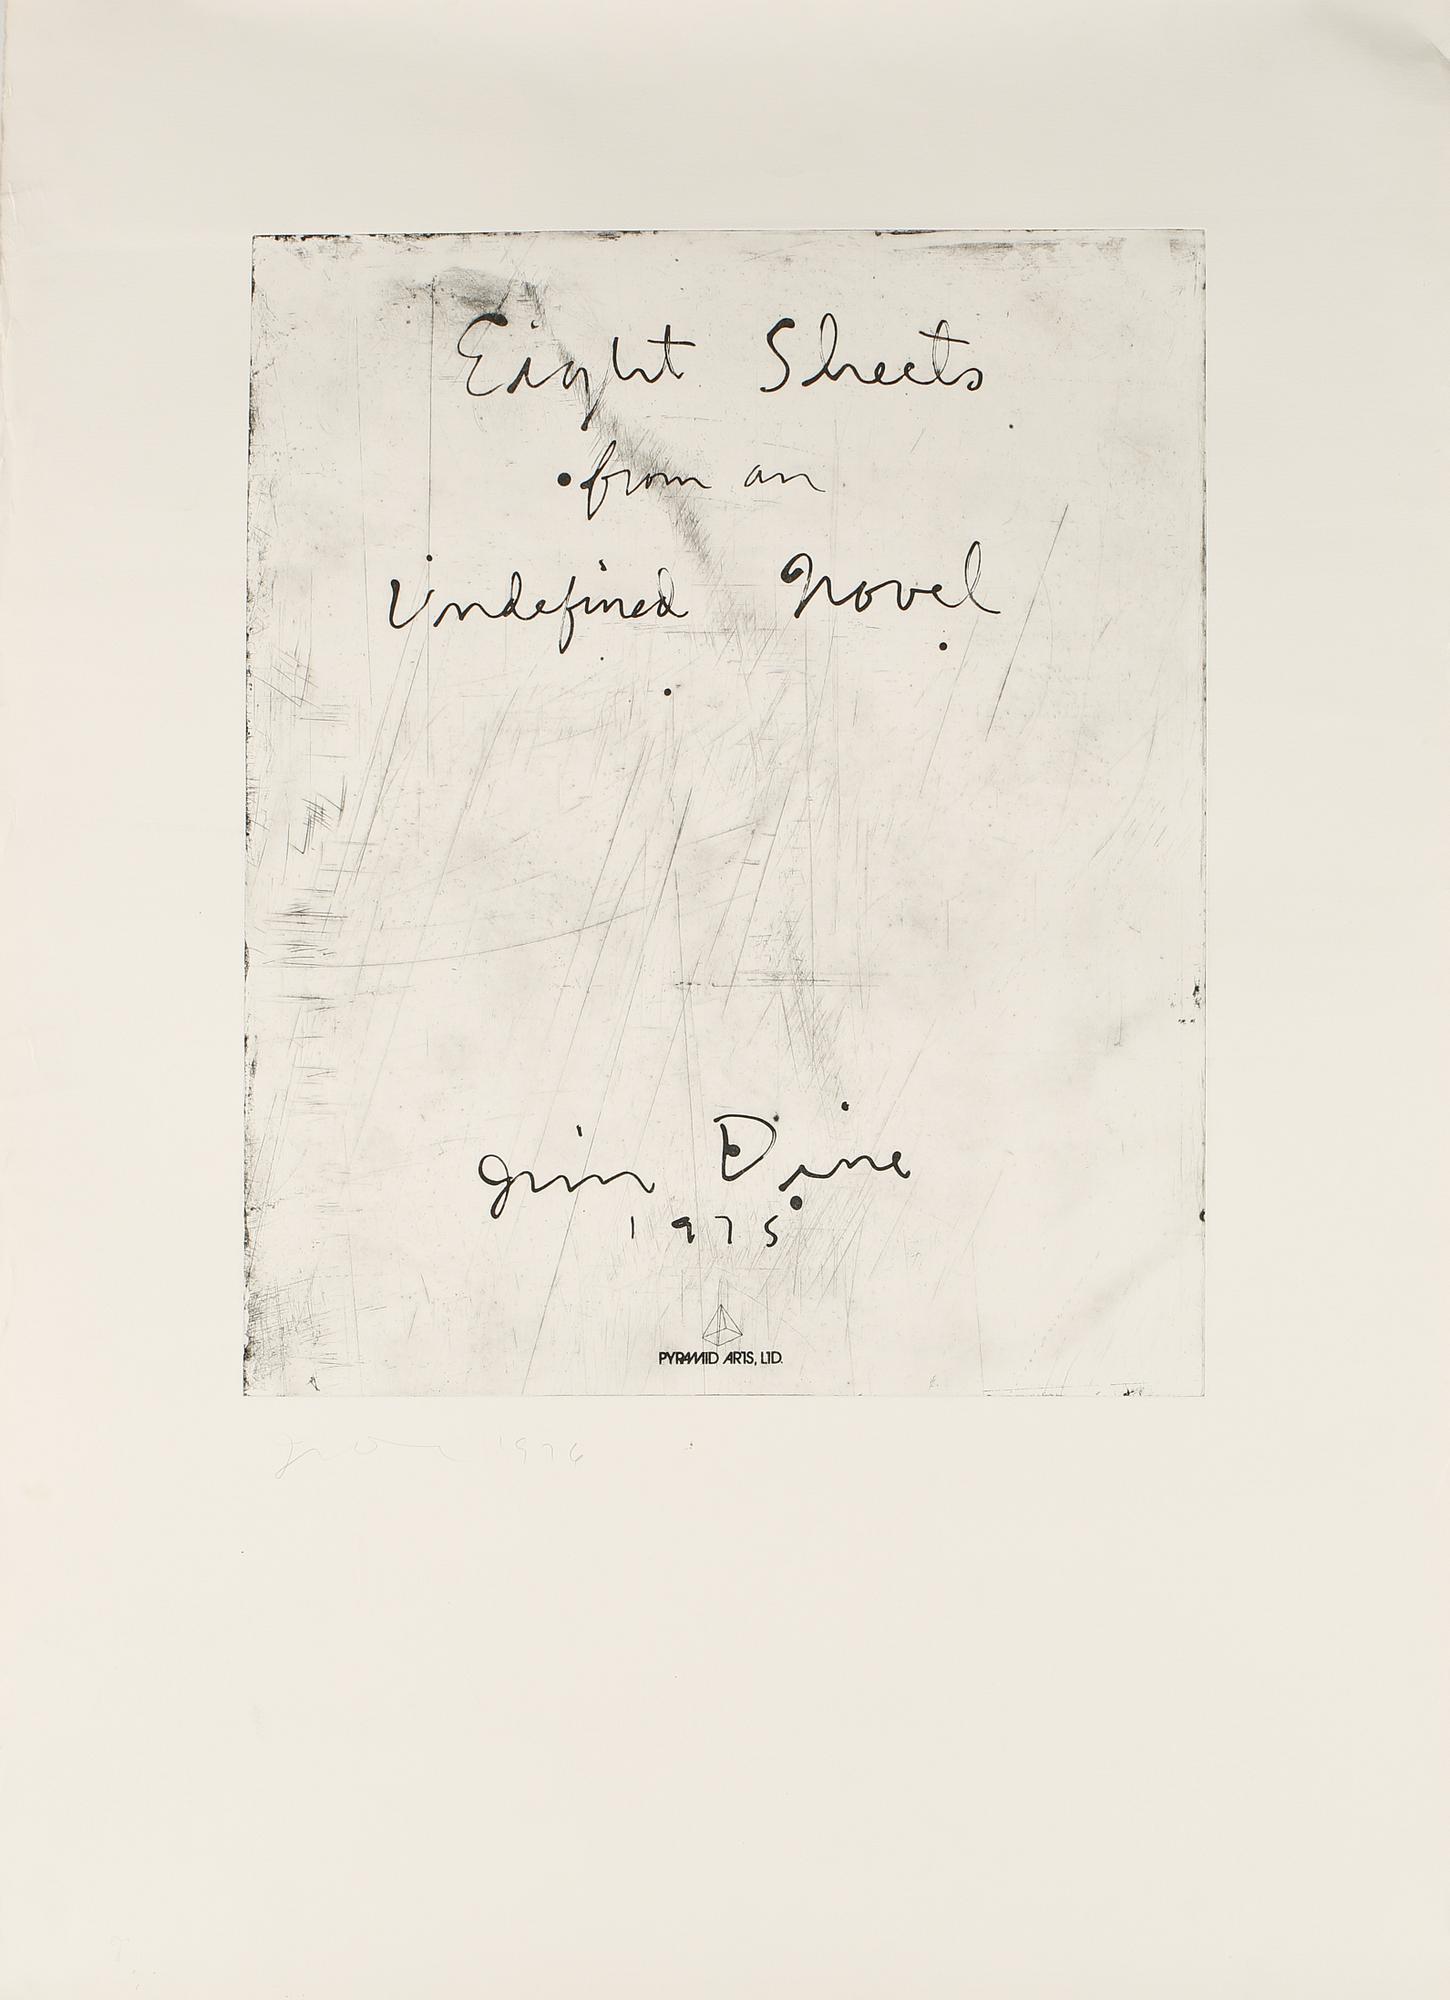 Eight Sheets
from an
Undefined Novel
Jim Dine
1975
PYRAMID ARTS, LTD.
Jim Dine 1976